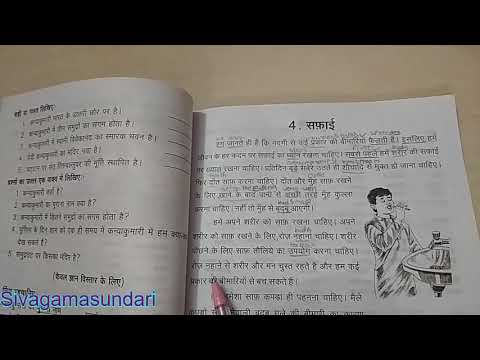 सही या गलत लिखिए:
1. कन्याकुमारी भारत के उत्तरी छोर पर है।
2. कन्याकुमारी में तीन समुद्रों का संगम होता है।
3. कन्याकुमारी में स्वामी विवेकानंद का स्मारक भवन है।
4. देवी कन्याकुमारी का मंदिर यहाँ है।
5. चट्टान पर संत तिरुवल्लुवर की मूर्ति स्थापित है।
प्रश्नों का उत्तर एक वाक्य में लिखिए:
1. कन्याकुमारी कहाँ है?
2. कन्याकुमारी में
3. कन्याकुमारी में कितने समुद्रों का संगम होता है?
4. पूर्णिमा के दिन शाम को एक ही समय में कन्याकुमारी में हम क्या-क्या
देख सकते हैं?
5. समुद्रतट पर किसका मंदिर है?
(केवल ज्ञान विस्तार के लिए)
4. सफ़ाई
हम जानते ही हैं कि गंदगी से कई प्रकार की बीमारियाँ फैलती हैं। इसलिए हमें
जीवन के हर कदम पर सफ़ाई का ध्यान रखना चाहिए। सबसे पहले हमें शरीर की सफ़ाई
पर ध्यान रखना चाहिए। प्रतिदिन बड़े सबेरे उठते ही शौचादि से मुक्त हो जाना चाहिए।
फिर दाँत साफ़ करना चाहिए। दाँत और मुँह साफ़ रखने
के लिए खाने के बाद पानी से अच्छी तरह मुँह कुल्ला
करना चाहिए। नहीं तो मुँह से बदबू आएगी।
हमें अपने शरीर को साफ़ रखना चाहिए। अपने
शरीर को साफ़ रखने के लिए रोज़ नहाना चाहिए। शरीर
पोंछने के लिए साफ़ तौलिये का उपयोग करना चाहिए।
रोज़ नहाने से शरीर और मन चुस्त रहते हैं और हम कई
प्रकार की बीमारियों से बच सकते हैं।
हमेशा साफ़ कपड़ा ही पहनना चाहिए। मैले
Sivagamasundari